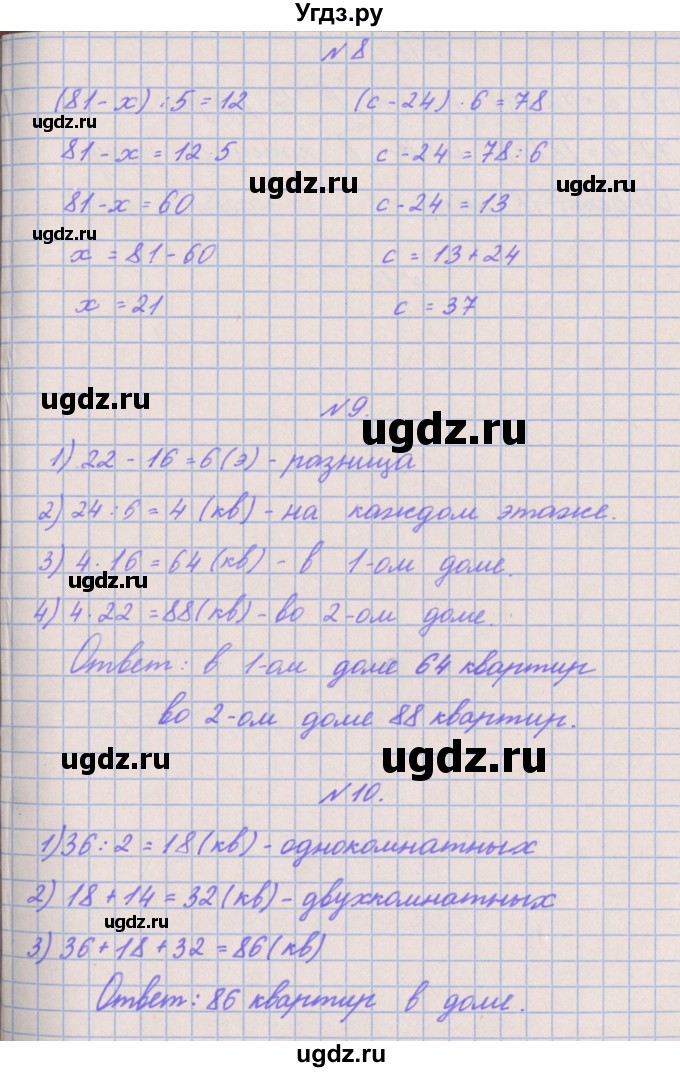 Угдз.ру
№8
(81-х):5=12 (с-24)·6=78
ugdz.ru
81-х=12·5 с-24=78:6
ugdz.ru ugdz.ru
81-х=60 с-24=13
ugdz.ru
х=81-60 с=13+24
х=21 с=37
ugdz.ru №9.
ugdz.ru
1) 22-16=6(э)-разница
2) 24:6=4(кв)-на каждом этаже.
3) 4·16=64(кв)-в 1-ом доме.
ugdz.ru
4) 4·22=88(кв)-во 2-ом доме.
Ответ: в 1-ом доме 64 квартир
во 2-ом доме 88 квартир.
ugdz.ru ugdz.ru
№10.
1) 36:2=18(кв)-однокомнатных
2) 18+14=32(кв)-двухкомнатных
ugdz.ru
3) 36+18+32=86(кв)
Ответ: 86 квартир в доме.
ugdz.ru